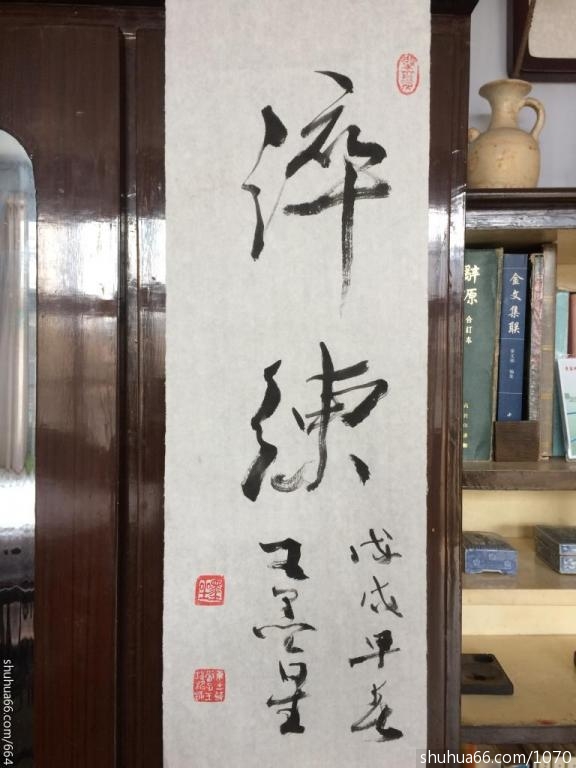 淬
練
戊戌早春
王墨星
辭源
合訂本
金文集联
shuhua66.com/664
shuhua66.com/1070